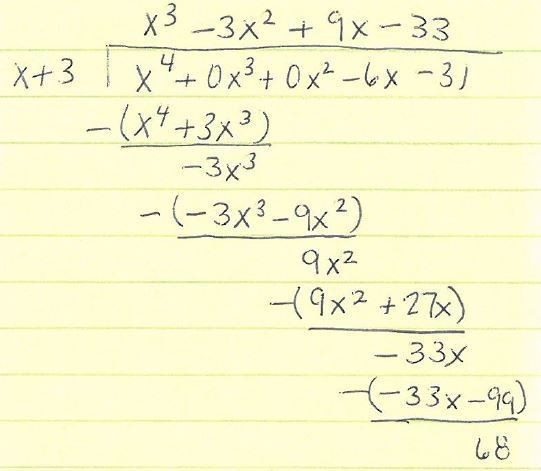 x³ - 3x² + 9x - 33
x+3 | x⁴ + 0x³ + 0x² - 6x - 31
-(x⁴ + 3x³)
-3x³
-(-3x³ - 9x²)
9x²
-(9x² + 27x)
-33x
-(-33x - 99)
68